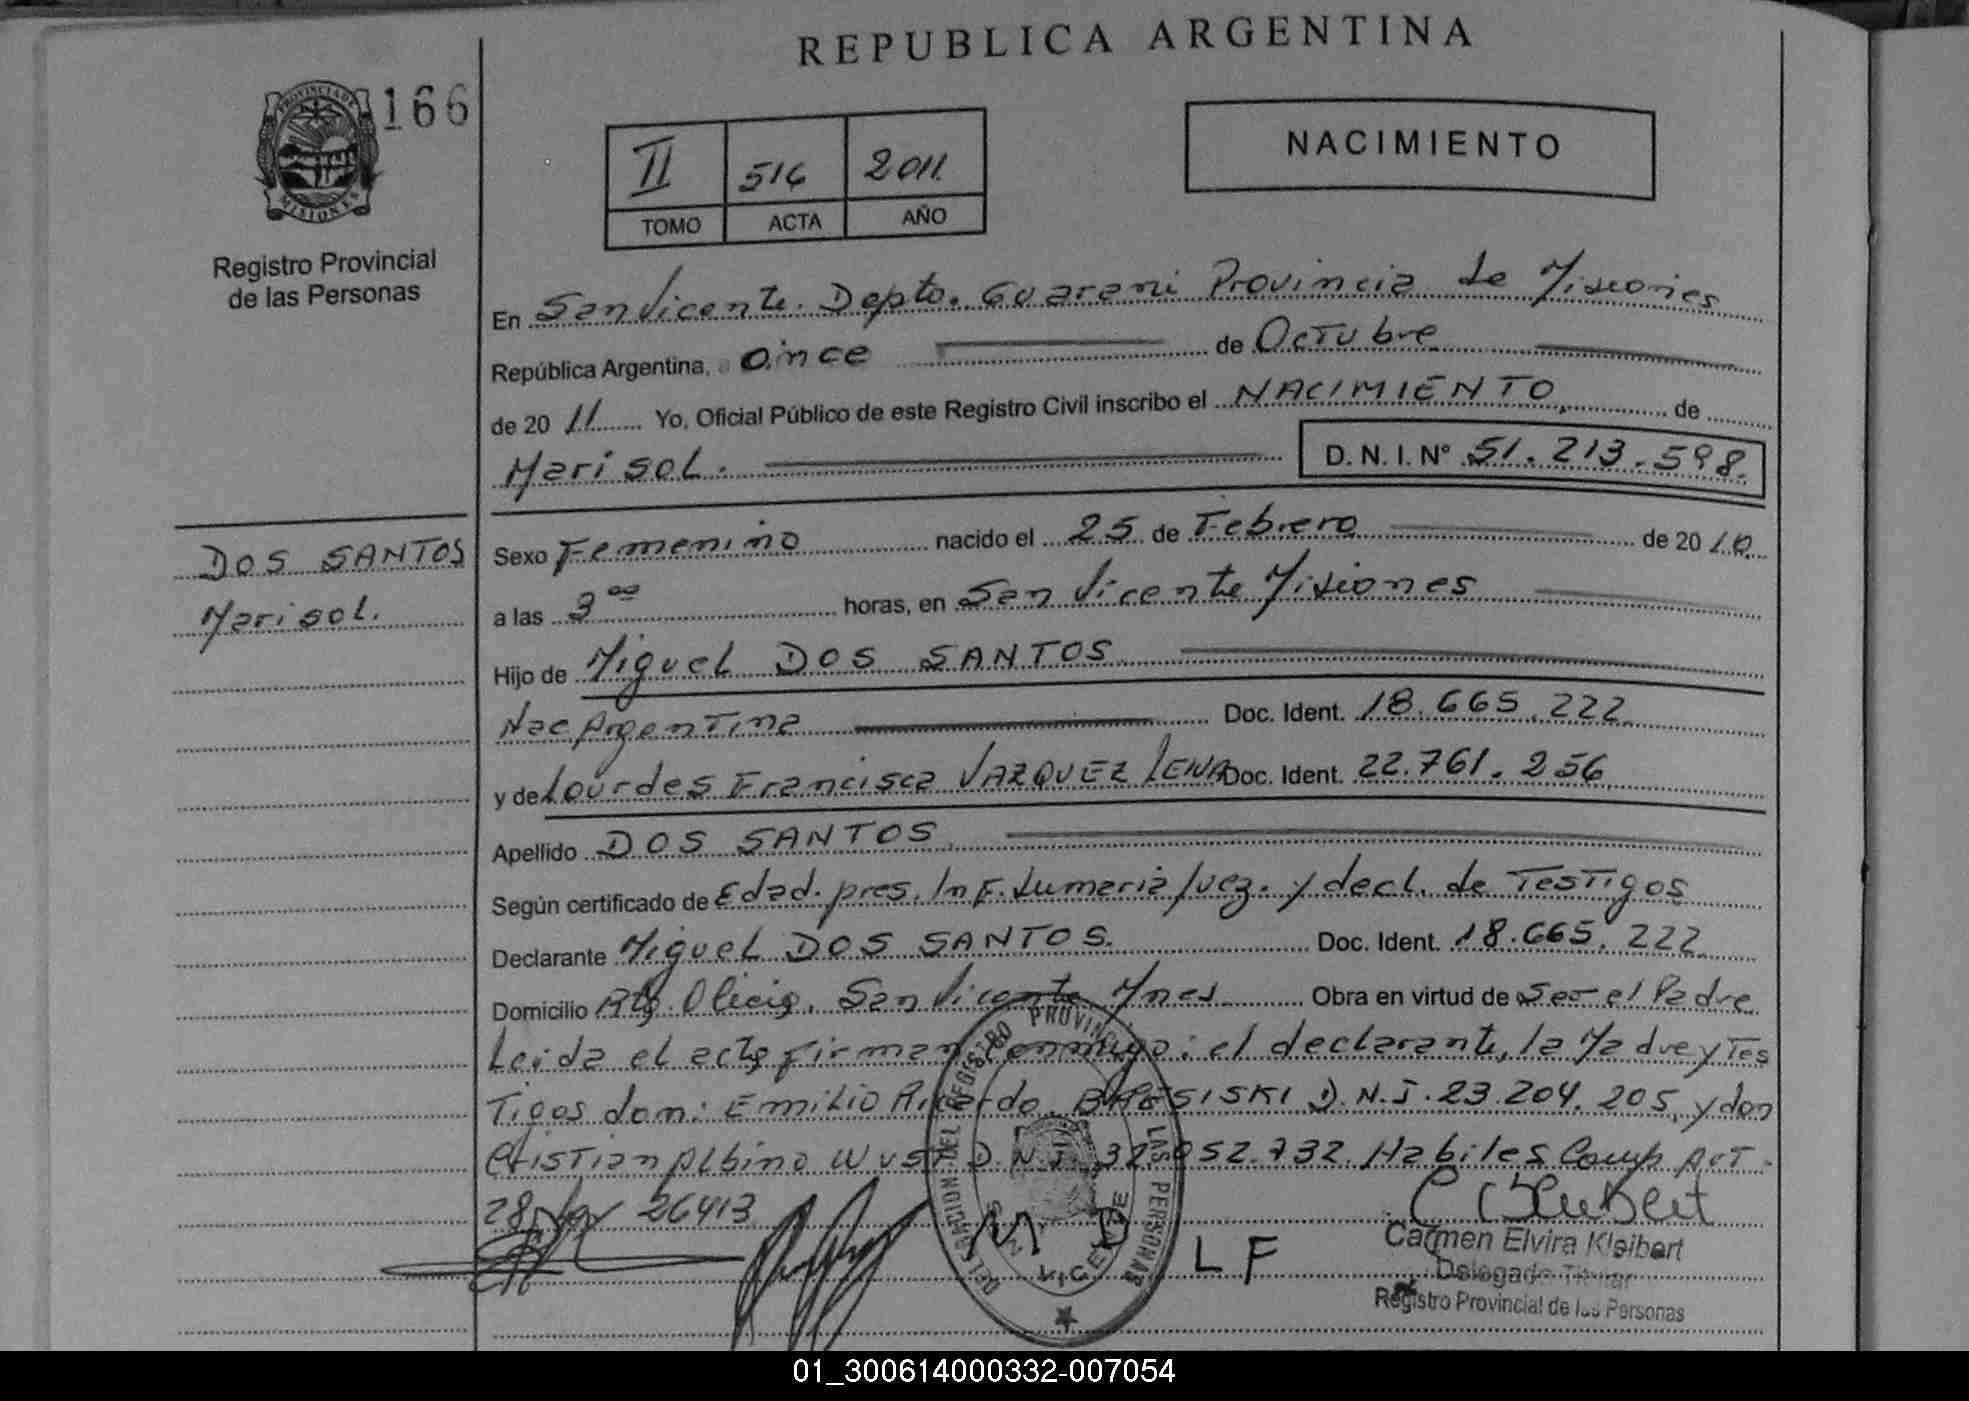 REPUBLICA ARGENTINA
PROVINCIA DE
MISIONES
166
Registro Provincial
de las Personas
II 516 2011
TOMO ACTA AÑO
NACIMIENTO
En San Vicente. Depto. Guarani Provincia de Misiones
República Argentina, a Once de Octubre
de 2011 Yo, Oficial Público de este Registro Civil inscribo el NACIMIENTO de
Marisol. D. N. I. N° 51.213.598.
DOS SANTOS
Marisol.
Sexo Femenino nacido el 25 de Febrero de 2010
a las 3 00 horas, en San Vicente Misiones
Hijo de Miguel DOS SANTOS
Nac Argentina Doc. Ident. 18.665.222
y de Lourdes Francisca VAZQUEZ LENA Doc. Ident. 22.761.256
Apellido DOS SANTOS
Según certificado de Edad. pres. Inf. Sumaria Juez. y decl. de Testigos
Declarante Miguel DOS SANTOS. Doc. Ident. 18.665.222
Domicilio San Vicente Mnes Obra en virtud de Ser el Padre
Leida el acta firman conmigo: el declarante, la Madre y Tes
Tigos don: Emilio Ricardo D.N.I. 23.204.205, y don
Cristian Albino Wust D.N.I. 32.952.732. Habiles Comp Art.
28 Ley 26413
DELEGACION DEL REGISTRO PROVINCIAL LAS PERSONAS
SAN VICENTE
M D
L F
C Kleibert
Carmen Elvira Kleibert
Delegado Titular
Registro Provincial de las Personas
01_300614000332-007054